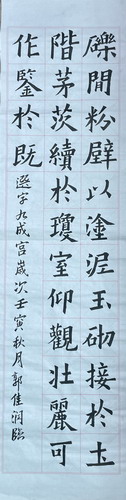 礫開粉壁以塗泥玉砌接於土
階茅茨續於瓊室仰觀壯麗可
作鑒於既
選字九成宮歲次壬寅秋月郭佳润臨